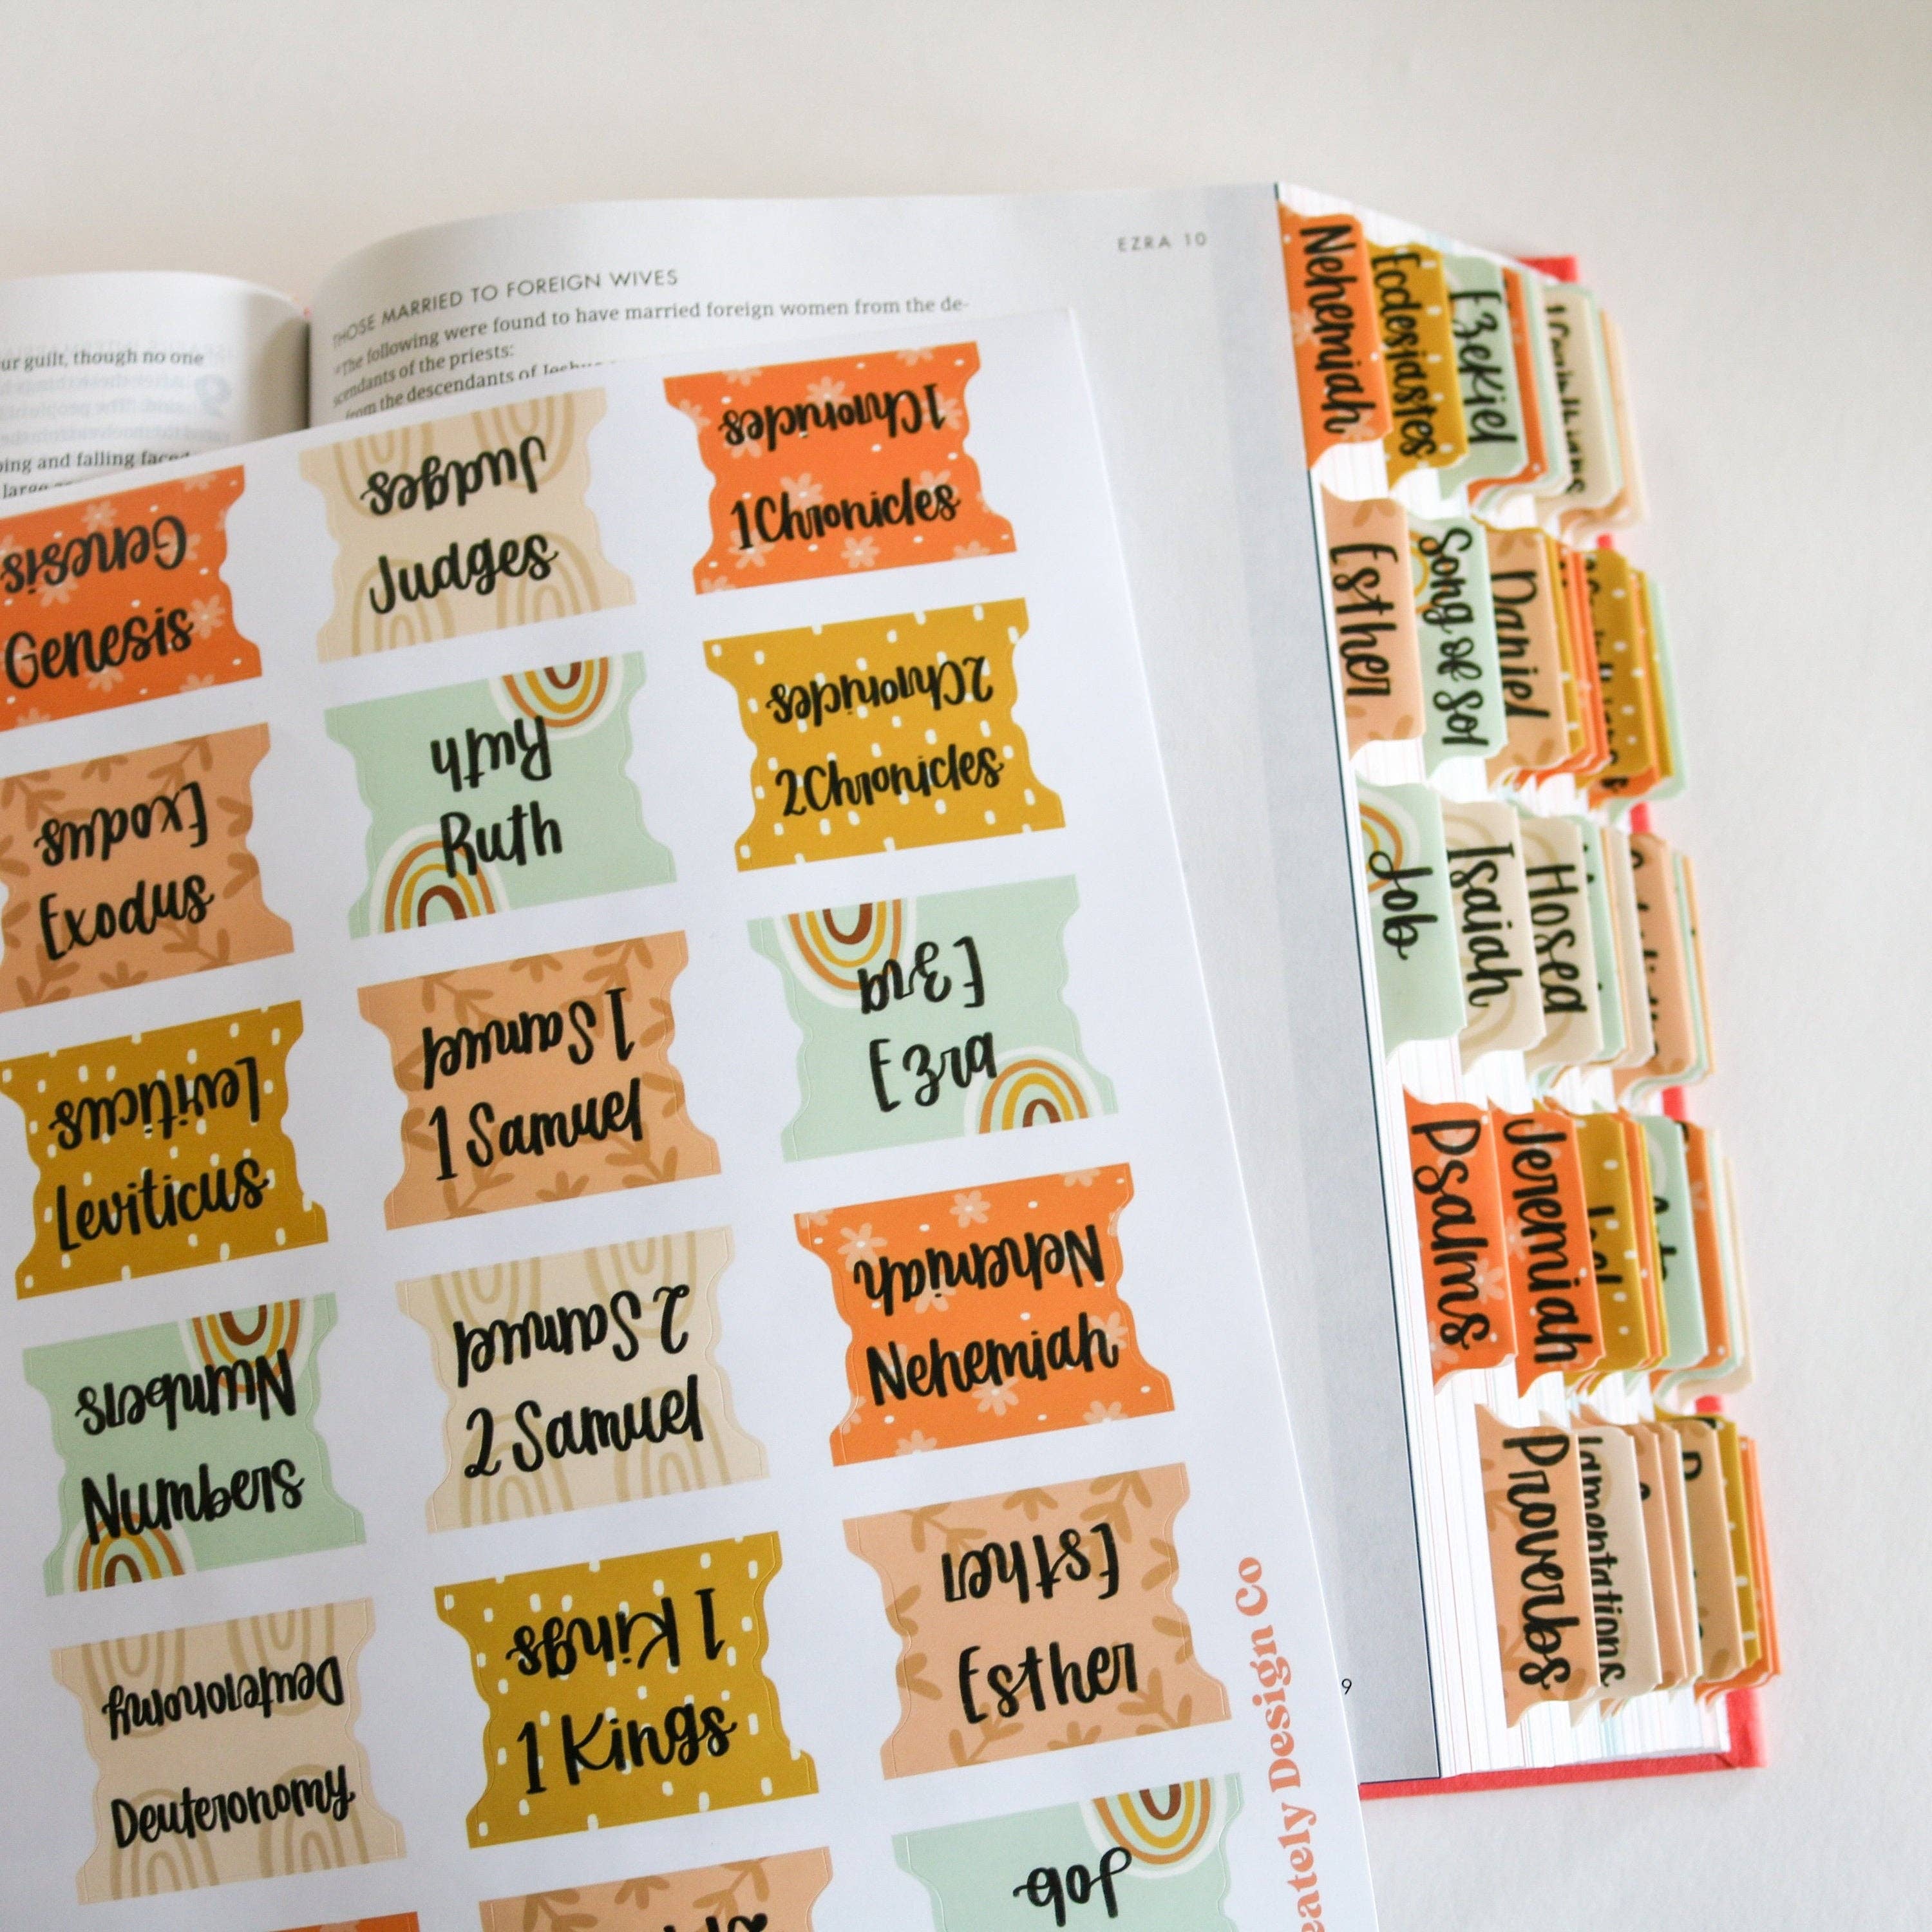 EZRA 10
THOSE MARRIED TO FOREIGN WIVES
The following were found to have married foreign women from the de-
scendants of the priests:
from the descendants of
ur guilt, though no one
ing and falling
large
Genesis
Genesis
Judges
Judges
1 Chronicles
1 Chronicles
Exodus
Exodus
Ruth
Ruth
2 Chronicles
2 Chronicles
Leviticus
Leviticus
1 Samuel
1 Samuel
Ezra
Ezra
Numbers
Numbers
2 Samuel
2 Samuel
Nehemiah
Nehemiah
Deuteronomy
Deuteronomy
1 Kings
1 Kings
Esther
Esther
Job
eately Design Co
9
Nehemiah
Ecclesiastes
Ezekiel
1 Corinthians
Esther
Song of Sol
Daniel
Job
Isaiah
Hosea
Psalms
Jeremiah
Joel
Proverbs
Lamentations